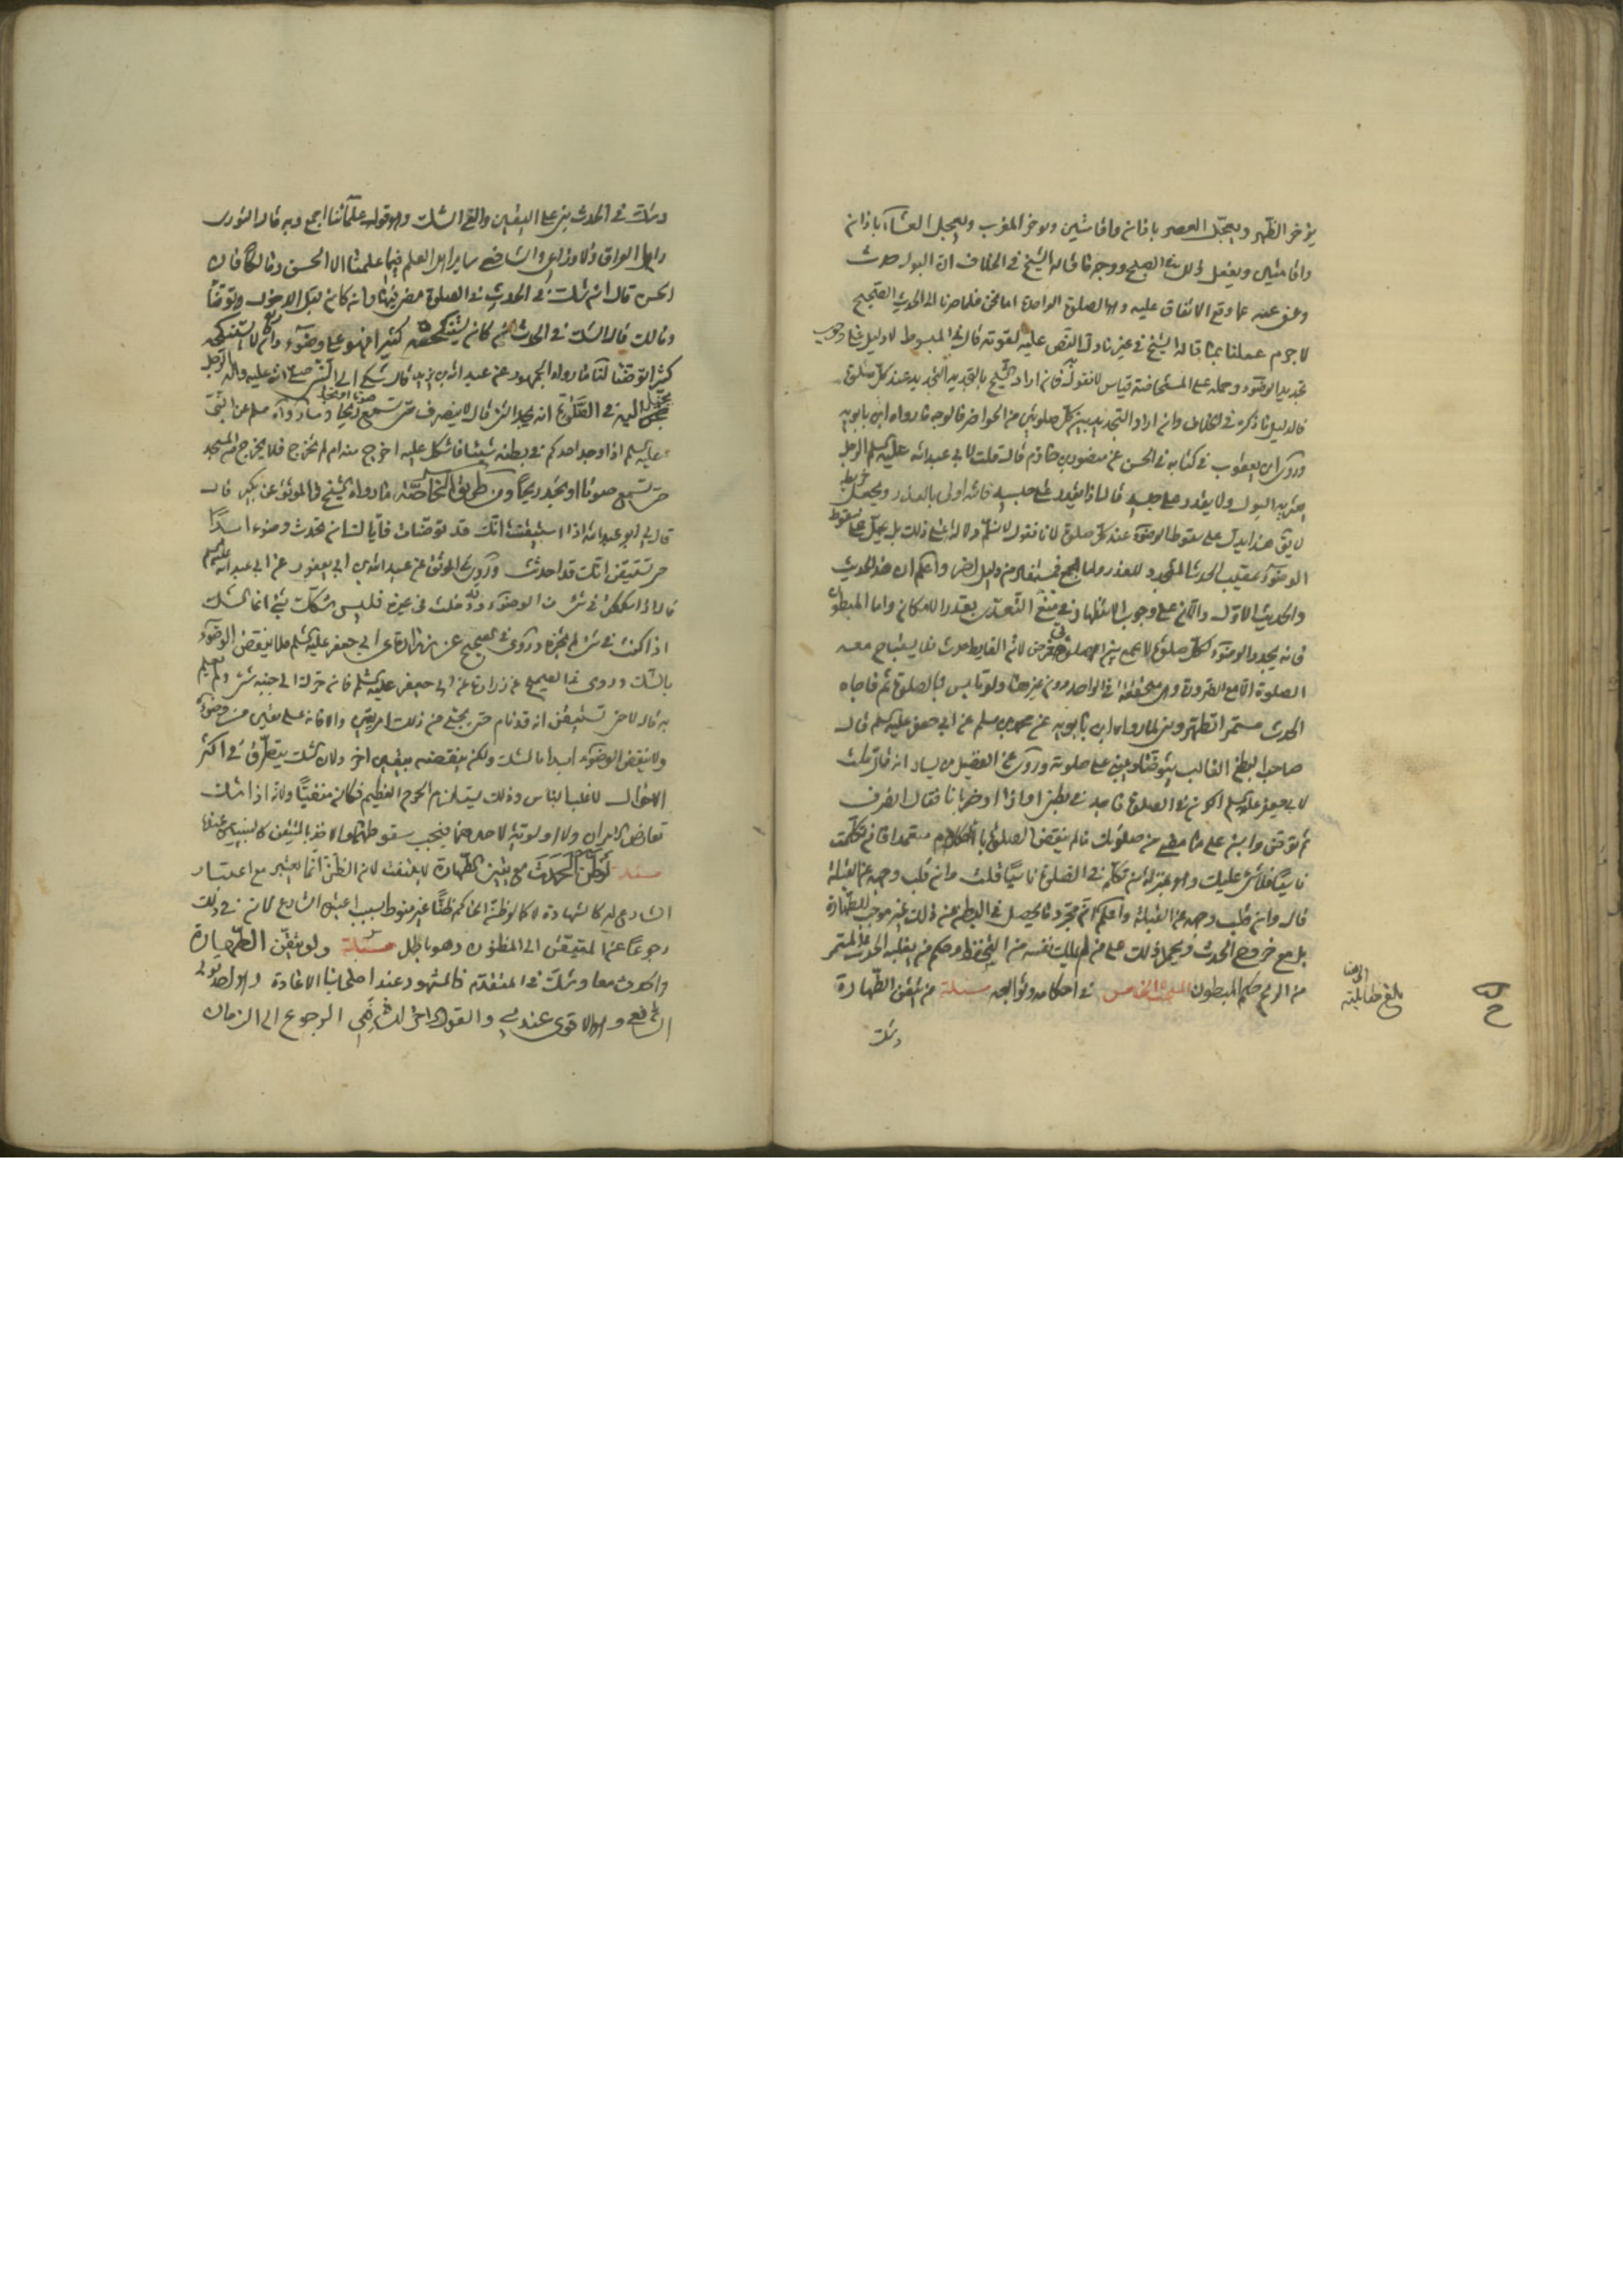 يؤخر الظهر ويعجل العصر باذان واقامتين ويوخر المغرب ويعجل العشاء باذان
واقامتين ويفعل ذلك في الصبح ووجه ما قاله الشيخ في الخلاف ان البول حدث
وعفى عنه عما وقع الاتفاق عليه وهو الصلوة الواحدة اما نحن فلما صرنا الى الحديث الصحيح
لا جرم عملنا بما قاله الشيخ في غير ما دل النص عليه لقوته قال في المبسوط لا دليل على وجوب
تجديد الوضوء وحمله على المستحاضة قياس لا نقول به فان اراد الشيخ بالتجديد التجديد عند كل صلوة
فالدليل ما ذكره في الخلاف وان اراد التجديد بين كل صلوتين من الحواضر فالوجه ما رواه ابن بابويه
وروى ابن يعقوب في كتابه في الحسن عن منصور بن حازم قال قلت لابي عبدالله عليه السلم الرجل
يعتريه البول ولا يقدر على حبسه قال اذا لم يقدر على حبسه فالله اولى بالعذر ويجعل خريطة
لا يق هذا يدل على سقوط الوضوء عند كل صلوة لانا نقول لا نسلم دلالته على ذلك بل يدل على سقوط
الوضوء عقيب الحدث المتجدد للعذر واما الجمع فمستفاد من دليل اخر واعلم ان هذا الحديث
والحديث الاول دالان على وجوب الاستظهار في منع التعدى بقدر الامكان واما المبطون
فانه يجدد الوضوء لكل صلوة لا يجمع بين صلوتى فرض لان الغايط حدث فلا يستباح معه
الصلوة الا مع الضرورة وهى متحققة في الواحدة دون غيرها ولو تلبس بالصلوة ثم فاجاه
الحدث مستمرا تطهر وبنى لما رواه ابن بابويه عن محمد بن مسلم عن ابي جعفر عليه السلم قال
صاحب البطن الغالب يتوضأ ويبنى على صلوته وروى عن الفضيل بن يسار انه قال قلت
لابي جعفر عليه السلم اكون في الصلوة فاجد في بطني اذى او ضربانا فقال انصرف
ثم توضى وابن على ما مضى من صلوتك ما لم ينقض الصلوة بالكلام متعمدا فان تكلمت
ناسيا فلا شى عليك وهو بمنزلة من تكلم في الصلوة ناسيا قلت وان قلب وجهه عن القبلة
قال وان قلب وجهه عن القبلة واعلم ان مجرد ما يحصل في البطن من ذلك غير موجب للطهارة
بل مع خروج الحدث ويحمل ذلك على من لم يملك نفسه من التحفظ وحكم من يغلبه الحدث المستمر
من الريح حكم المبطون البحث الخامس في احكامه وتوابعه مسئلة من تيقن الطهارة
وشك
وشك في الحدث بنى على اليقين والقى الشك وهو قول علمائنا اجمع وبه قال الثوري
واهل العراق والاوزاعي والشافعي ساير اهل العلم فيما علمنا الا الحسن ومالكا فان
الحسن قال ان شك في الحدث في الصلوة مضى فيها وان كان قبل الدخول توضأ
ومالك قال ان شك في الحدث ان كان يستنكحه كثيرا فهو على وضوء وان كان لا يستنكحه
كثيرا توضأ لنا ما رواه الجمهور عن عبد الله بن زيد قال شكى الى النبي صلى الله عليه واله الرجل
يخيل اليه في الصلوة انه يجد الشئ قال لا ينصرف حتى يسمع صوتا او يجد ريحا وما رواه مسلم عن النبي
عليه السلم اذا وجد احدكم في بطنه شيئا فاشكل عليه اخرج منه ام لم يخرج فلا يخرج من المسجد
حتى يسمع صوتا او يجد ريحا ومن طريق الخاصة ما رواه الشيخ في الموثق عن بكير قال
قال لي ابو عبدالله اذا استيقنت انك قد توضأت فاياك ان تحدث وضوءا ابدا
حتى تستيقن انك قد احدثت وروى في الموثق عن عبدالله بن ابي يعفور عن ابي عبدالله عليه السلم
قال اذا شككت في شئ من الوضوء وقد دخلت في غيره فليس شكك بشئ انما الشك
اذا كنت في شئ لم تجزه وروى في الصحيح عن زرارة عن ابي جعفر عليه السلم فلا ينقض الوضوء
بالشك وروى في الصحيح عن زرارة عن ابي جعفر عليه السلم فان حرك الى جنبه شئ ولم يعلم
به قال لا حتى تستيقن انه قد نام حتى يجئ من ذلك امر بين والا فانه على يقين من وضوئه
ولا ينقض الوضوء ابدا بالشك ولكن ينقضه بيقين اخر ولان الشك يتطرق في اكثر
الاحوال لاغلب الناس وذلك يستلزم الحرج العظيم فكان منفيا ولانه اذا شك
تعارض الامران ولا اولوية لاحدهما فيجب سقوطهما والاخذ بالمتيقن كالبينتين
مسئلة لو ظن الحدث مع تيقن الطهارة لا يلتفت لان الظن انما يعتبر مع اعتبار
الشارع له كالشهادة لا كما لو ظن الحاكم ظنا غير منوط بسبب اعتبره الشارع لان في ذلك
رجوعا عن المتيقن الى المظنون وهو باطل مسئلة ولو تيقن الطهارة
والحدث معا وشك في المتقدم فالمشهور عند اصحابنا الاعادة وهو احد قولى
الشافعي وهو الاقوى عندي والقول الاخر للشافعي الرجوع الى الزمان